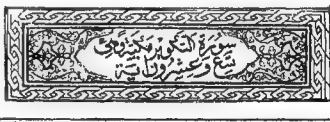 سورة التكوير مكية وهي
تسع وعشرون آية